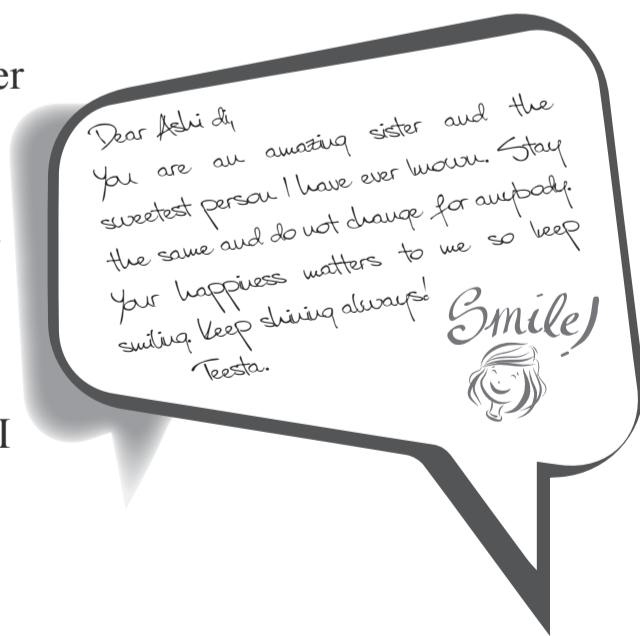 er
Dear Ashi di,
You are an amazing sister and the
sweetest person I have ever known. Stay
the same and do not change for anybody.
Your happiness matters to me so keep
smiling. Keep shining always!
Teesta.
Smile!
I